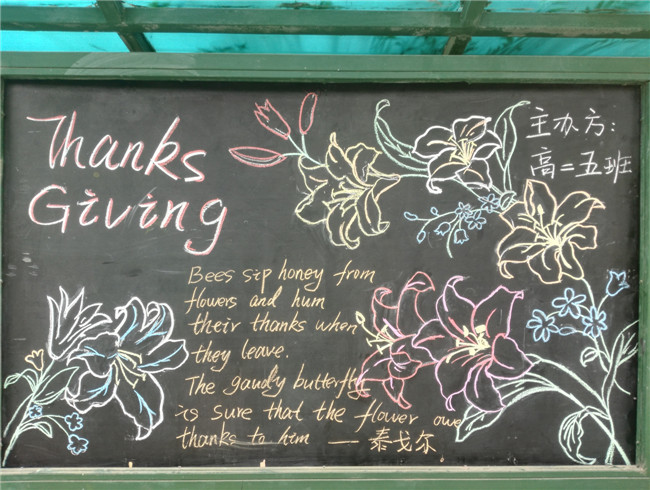 Thanks
Giving
主办方:
高二五班
Bees sip honey from
flowers and hum
their thanks when
they leave.
The gaudy butterfly
is sure that the flower owe
thanks to him — 泰戈尔